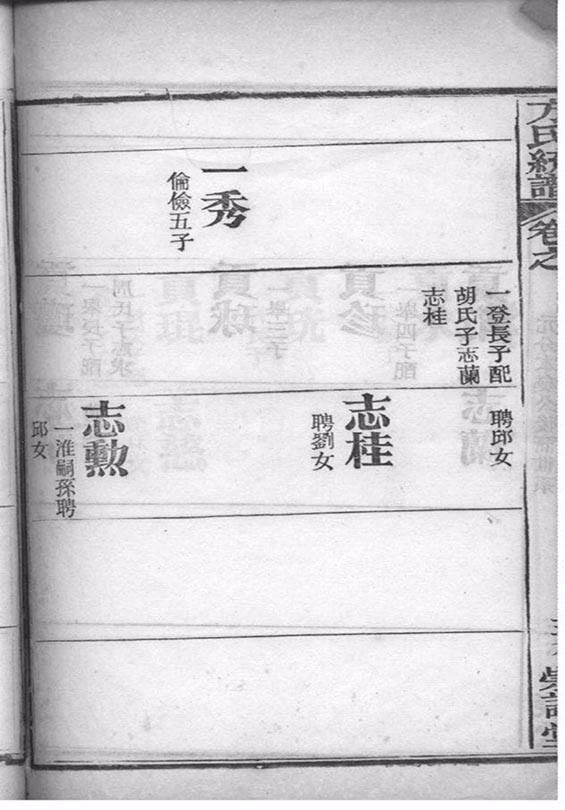 方氏統譜
卷之
一秀
倫儉五子
一登長子配
胡氏子志蘭
志桂
聘邱女
志桂
聘劉女
志勲
一淮嗣孫聘
邱女